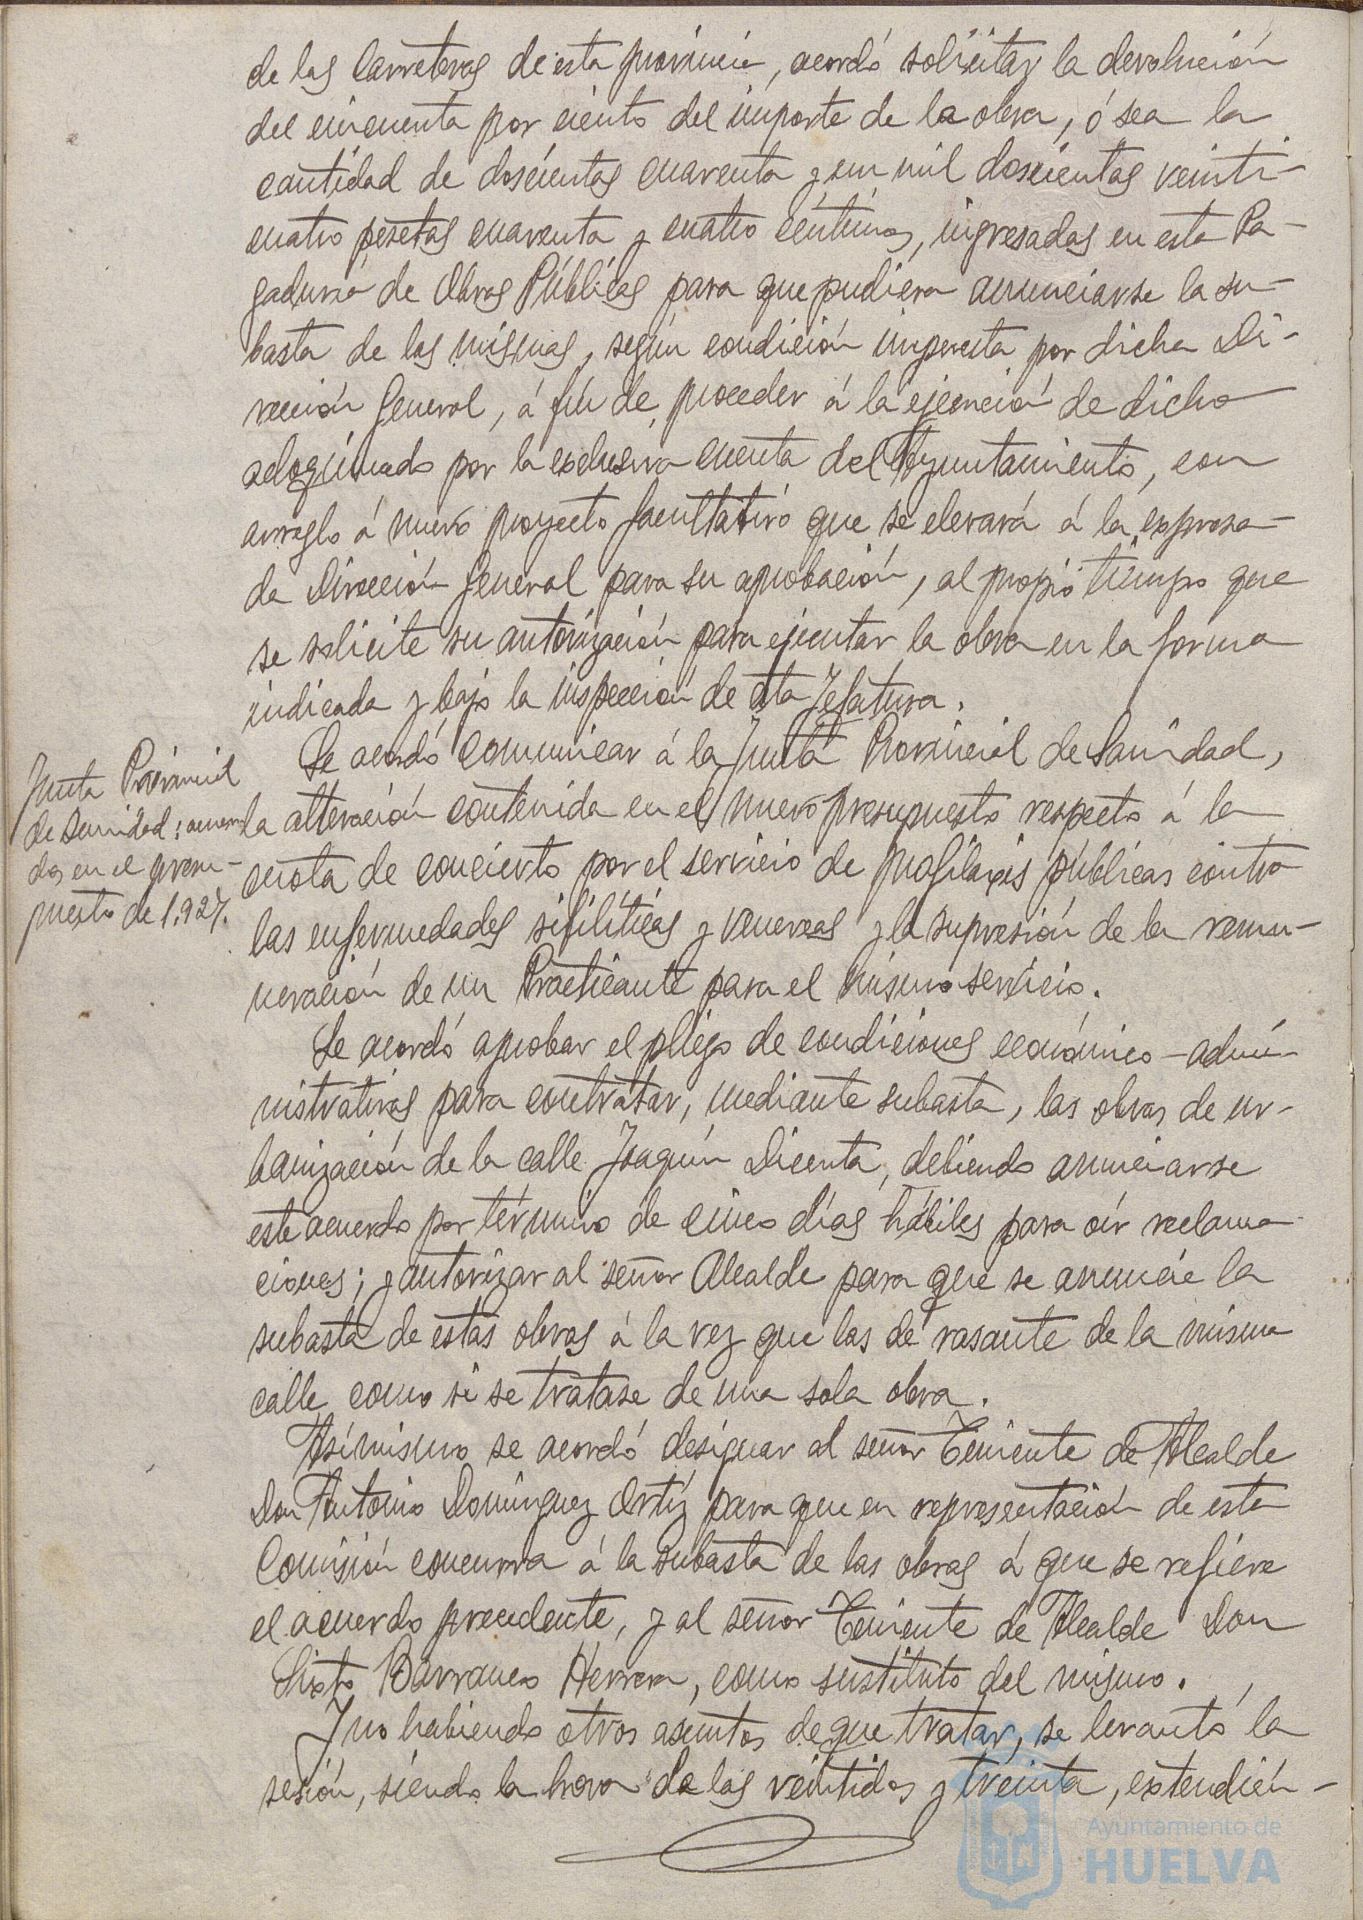 de las Carreteras de esta provincia, acordó solicitar la devolución
del cincuenta por ciento del importe de la obra, ó sea la
cantidad de doscientas cuarenta y un mil doscientas veinti-
cuatro pesetas cuarenta y cuatro céntimos, ingresadas en esta Pa-
gaduría de Obras Públicas para que pudiera anunciarse la su-
basta de las mismas, según condición impuesta por dicha Di-
rección General, á fin de proceder á la ejecución de dicho
adoquinado por la exclusiva cuenta del Ayuntamiento, con
arreglo á nuevo proyecto facultativo que se elevará á la expresa-
da Dirección General para su aprobación, al propio tiempo que
se solicite su autorización para ejecutar la obra en la forma
indicada y bajo la inspección de esta Jefatura.
Junta Provincial
de Sanidad: acuer
dos en el presu-
puesto de 1.927.
Se acordó comunicar á la Junta Provincial de Sanidad,
la alteración contenida en el nuevo presupuesto respecto á la
cuota de concierto por el servicio de profilaxis públicas contra
las enfermedades sifilíticas y venereas y la supresión de la remu-
neración de un Practicante para el mismo servicio.
Se acordó aprobar el pliego de condiciones económico-admi-
nistrativas para contratar, mediante subasta, las obras de ur-
banización de la calle Joaquín Dicenta, debiendo anunciarse
este acuerdo por término de cinco días hábiles para oír reclama
ciones; y autorizar al señor Alcalde para que se anuncie la
subasta de estas obras á la vez que las de rasante de la misma
calle como si se tratase de una sola obra.
Asímismo se acordó designar al señor Teniente de Alcalde
Don Antonio Domínguez Ortíz para que en representación de esta
Comisión concurra á la subasta de las obras á que se refiere
el acuerdo precedente, y al señor Teniente de Alcalde Don
Sixto Barranco Herrera, como sustituto del mismo.
Y no habiendo otros asuntos de que tratar, se levantó la
sesión, siendo la hora de las veintidos y treinta, extendién-
Ayuntamiento de
HUELVA